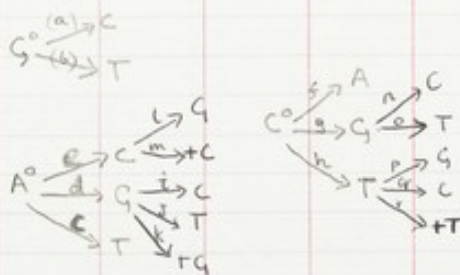 (a) C
G° (b) T
A° e C l G
m +C
d G i C
j T
k +G
c T
C° f A
g G n C
o T
h T p G
q C
r +T